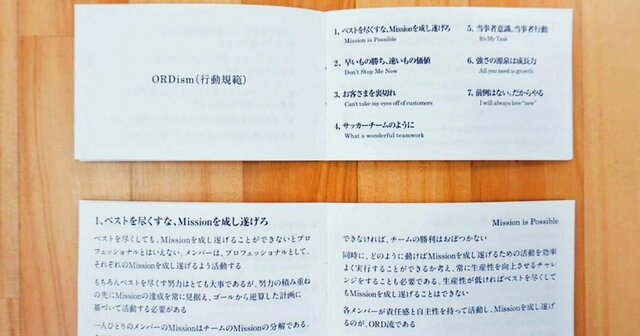 ORDism(行動規範)
1、ベストを尽くすな、Missionを成し遂げろ
Mission is Possible
2、早いもの勝ち、速いもの価値
Don't Stop Me Now
3、お客さまを裏切れ
Can't take my eyes off of customers
4、サッカーチームのように
What a wonderful teamwork
5、当事者意識、当事者行動
It's My Task
6、強さの源泉は成長力
All you need is growth
7、前例はない。だからやる
I will always love "new"
1、ベストを尽くすな、Missionを成し遂げろ
ベストを尽くしても、Missionを成し遂げることができないとプロ
フェッショナルとはいえない。メンバーは、プロフェッショナルとして、
それぞれのMissionを成し遂げるよう活動する
もちろんベストを尽くす努力はとても大事であるが、努力の積み重ね
の先にMissionの達成を常に見据え、ゴールから逆算した計画に
基づいて活動する必要がある
一人ひとりのメンバーのMissionはチームのMissionの分解である。
Mission is Possible
できなければ、チームの勝利はおぼつかない
同時に、どのように動けばMissionを成し遂げるための活動を効率
よく実行することができるか考え、常に生産性を向上させるチャレ
ンジをすることも必要である。生産性が低ければベストを尽くしても
Missionを成し遂げることはできない
各メンバーが責任感と自主性を持って活動し、Missionを成し遂げ
るのが、ORD流である